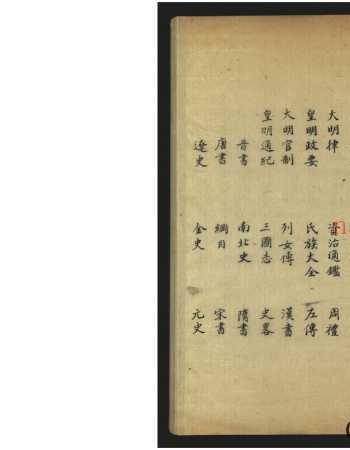 大明律 資治通鑑 周禮
皇明政要 氏族大全 左傳
大明官制 列女傳 漢書
皇明通紀 三國志 史畧
晉書 南北史 隋書
唐書 綱目 宋書
遼史 金史 元史